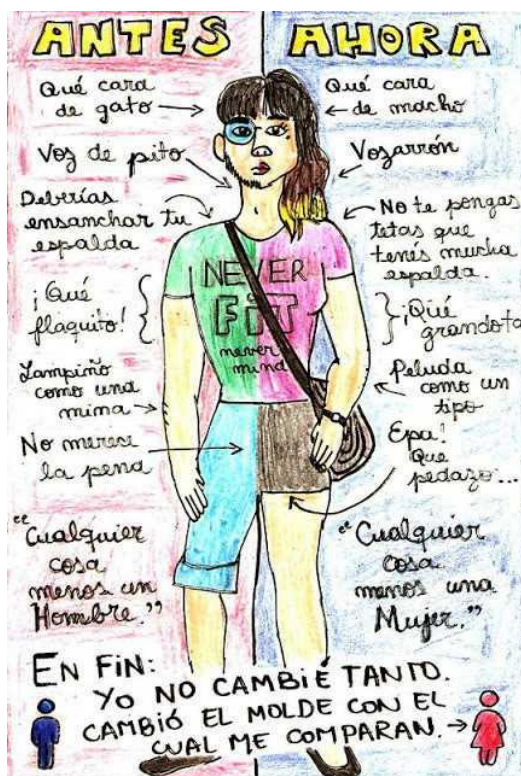 ANTES
Qué cara
de gato
Voz de pito
Deberías
ensanchar tu
espalda
¡Qué
flaquito!
Lampiño
como una
mina
No merece
la pena
"Cualquier
cosa
menos un
Hombre."
AHORA
Qué cara
de macho
Vozarrón
No te pongas
tetas que
tenés mucha
espalda.
¡Qué
grandota
Peluda
como un
tipo
Epa!
Que
pedazo...
"Cualquier
cosa
menos una
Mujer."
NEVER
FiT
never
mind
EN FiN:
YO NO CAMBiÉ TANTO.
CAMBIÓ EL MOLDE CON EL
CUAL ME COMPARAN.